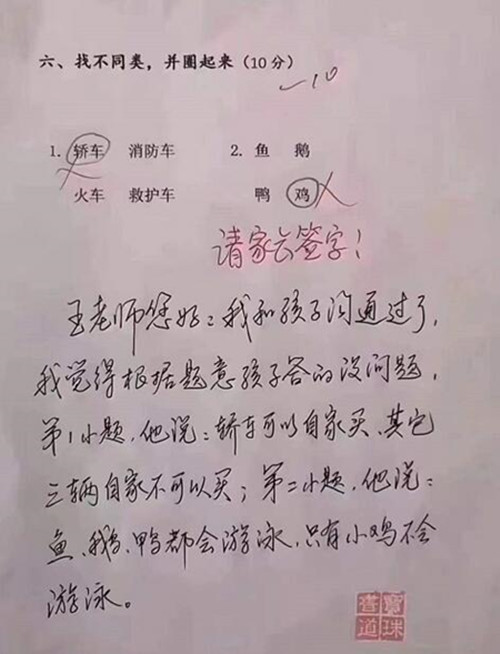 六、找不同类，并圈起来（10分）
-10
1. 轿车 消防车 2. 鱼 鹅
火车 救护车 鸭 鸡
请家长签字！
王老师您好：我和孩子沟通过了，
我觉得根据题意孩子答的没问题，
第1小题，他说：轿车可以自家买、其它
三辆自家不可以买；第二小题，他说：
鱼、鹅、鸭都会游泳，只有小鸡不会
游泳。